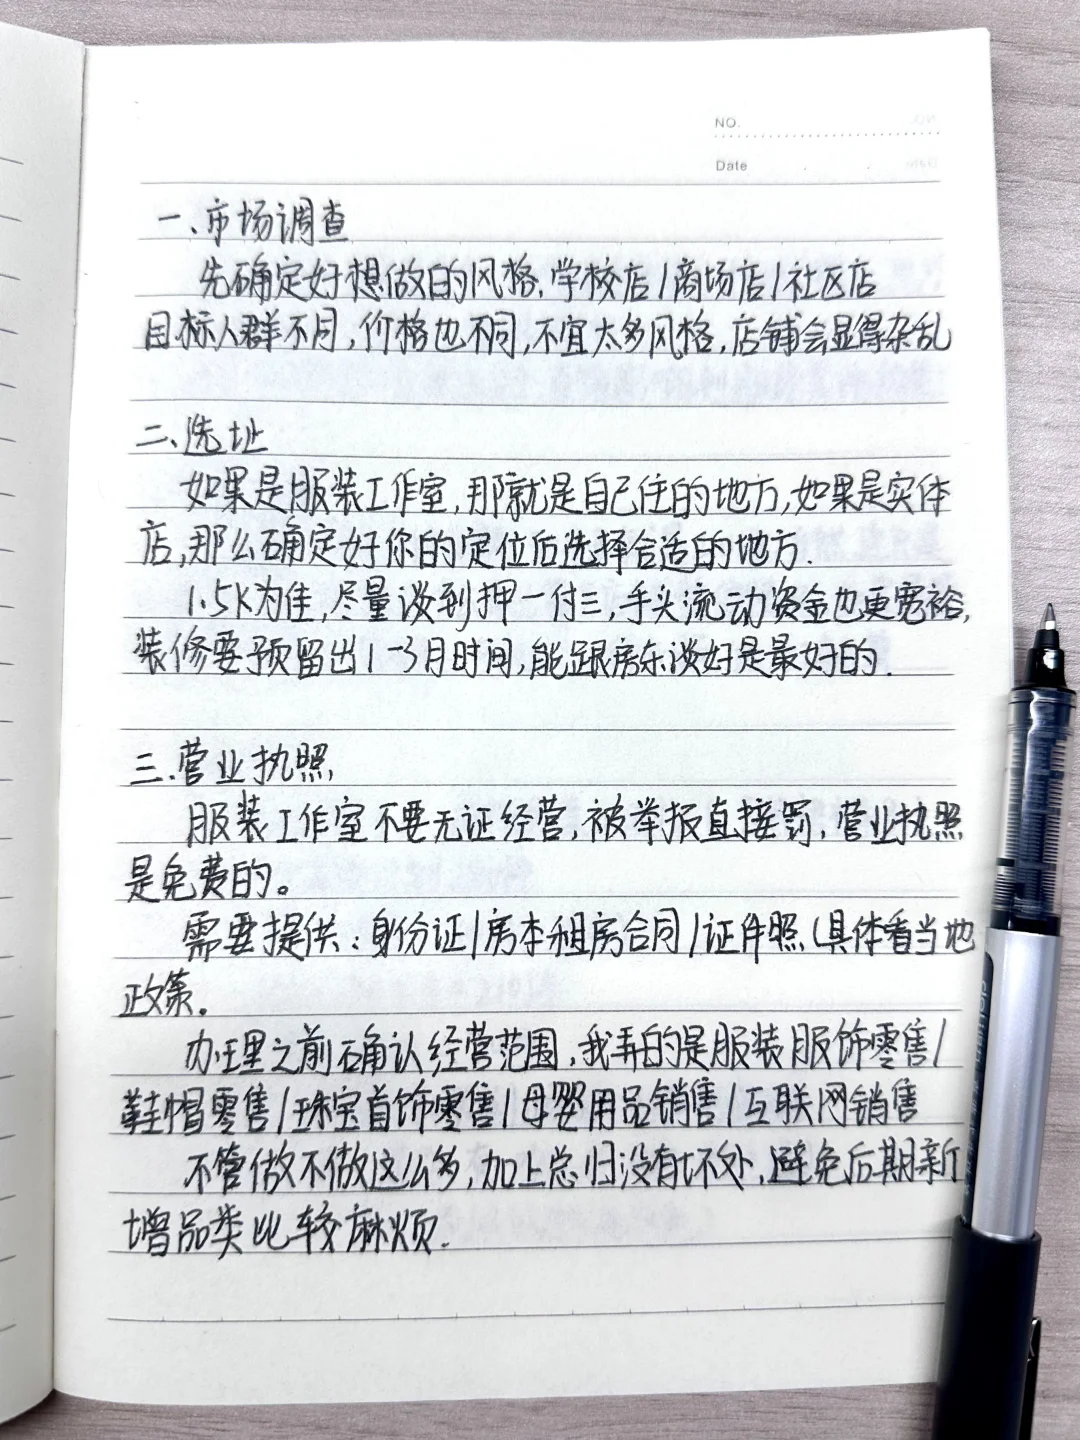 NO.
Date
一、市场调查
先确定好想做的风格、学校店/商场店/社区店
目标人群不同,价格也不同,不宜太多风格,店铺会显得杂乱
二、选址
如果是服装工作室,那就是自己住的地方,如果是实体
店,那么确定好你的定位后选择合适的地方.
1.5K为佳,尽量谈到押一付三,手头流动资金也更宽裕,
装修要预留出1-3月时间,能跟房东谈好是最好的.
三.营业执照
服装工作室不要无证经营,被举报直接罚,营业执照
是免费的。
需要提供:身份证/房本租房合同/证件照(具体看当地
政策。
办理之前确认经营范围,我弄的是服装服饰零售/
鞋帽零售/珠宝首饰零售/母婴用品销售/互联网销售
不管做不做这么多,加上总归没有坏处,避免后期新
增品类比较麻烦.